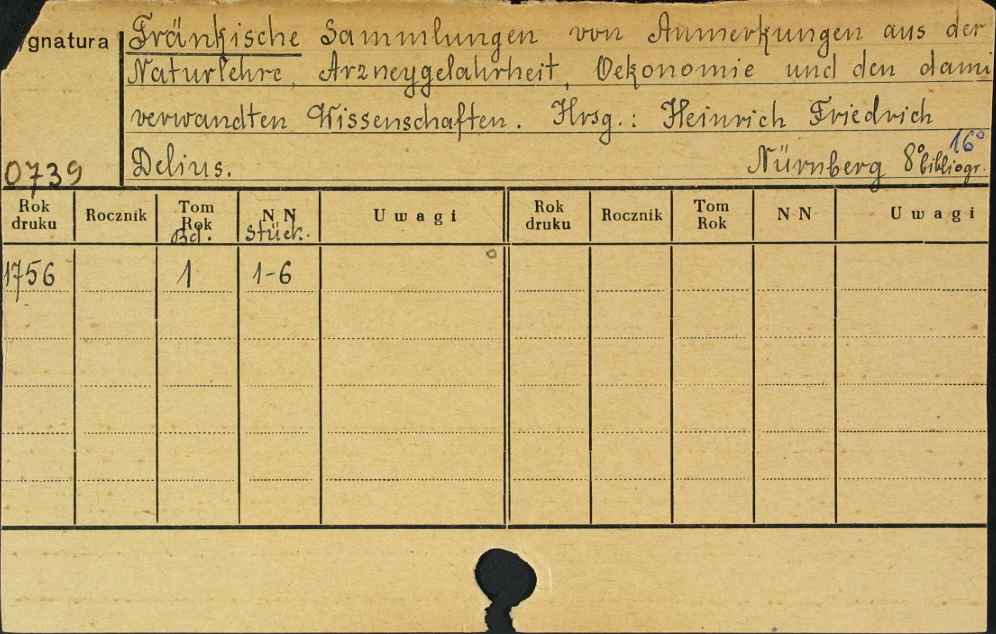 ygnatura
Fränkische Sammlungen von Anmerkungen aus der
Naturlehre, Arzneygelahrheit, Oekonomie und den dami
verwandten Wissenschaften. Hrsg.: Heinrich Friedrich
16°
0739 Delius. Nürnberg 8° bibliogr.
Rok druku Rocznik Tom Rok Bd. N N Stück. Uwagi Rok druku Rocznik Tom Rok N N Uwagi
1756 1 1-6